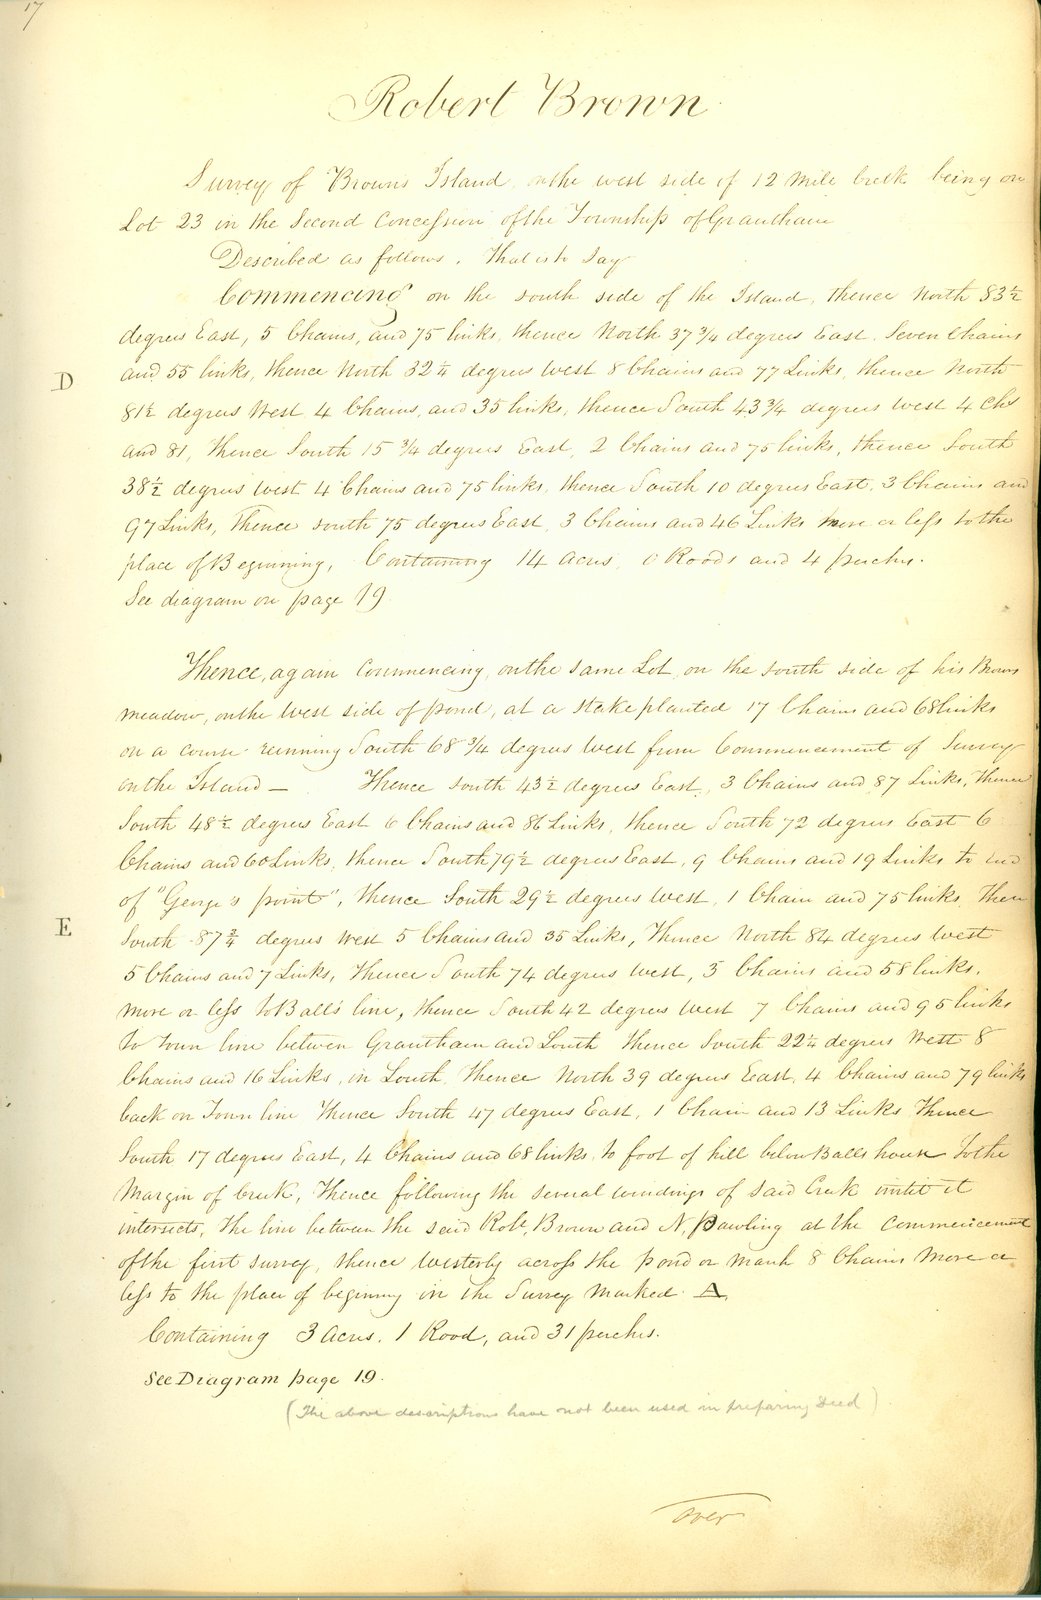 17
Robert Brown
Survey of Browns Island, on the west side of 12 Mile Creek being on
Lot 23 in the Second Concession of the Township of Grantham
Described as follows. That is to Say
Commencing on the south side of the Island, thence North 83½
degrees East, 5 Chains, and 75 links, thence North 37¾ degrees East. Seven Chains
D
and 55 links, thence North 32¼ degrees West 8 Chains and 77 Links, thence North
81½ degrees West 4 Chains, and 35 links, thence South 43¾ degrees West 4 Chs
and 81, thence South 15¾ degrees East, 2 Chains and 75 links, thence South
38½ degrees West 4 Chains and 75 links, thence South 10 degrees East. 3 Chains and
97 Links, Thence south 75 degrees East, 3 Chains and 46 Links more or less to the
place of Beginning, Containing 14 acres, 0 Roods and 4 perches.
See diagram on page 19
Thence, again Commencing, on the same Lot, on the south side of his Brown
meadow, on the West side of pond, at a stake planted 17 Chains and 68 links
on a course running South 68¾ degrees West from Commencement of Survey
on the Island — Thence south 43½ degrees East, 3 Chains and 87 Links, thence
South 48½ degrees East 6 Chains and 86 Links, thence South 72 degrees East 6
Chains and 60 Links, thence South 79½ degrees East, 9 Chains and 19 Links to end
of "George's point", thence South 29½ degrees West, 1 Chain and 75 links, Then
E
South 87¾ degrees West 5 Chains and 35 Links, Thence North 84 degrees West
5 Chains and 7 Links, thence South 74 degrees West, 3 Chains and 58 links,
more or less to Ball's line, thence South 42 degrees West 7 Chains and 95 links
to town line between Grantham and Louth Thence South 22¼ degrees West 8
Chains and 16 Links, in Louth, Thence North 39 degrees East, 4 Chains and 79 links
back on Town line Thence South 47 degrees East, 1 Chain and 13 Links Thence
South 17 degrees East, 4 Chains and 68 links to foot of hill below Balls house to the
Margin of Creek, Thence following the several windings of said Creek until it
intersects, the line between the said Robt. Brown and N. Pawling at the Commencement
of the first survey, thence Westerly across the pond or mark 8 Chains more or
less to the place of beginning in the Survey marked A
Containing 3 Acres, 1 Rood, and 31 perches.
See Diagram page 19.
(The above descriptions have not been used in preparing Deed)
Over